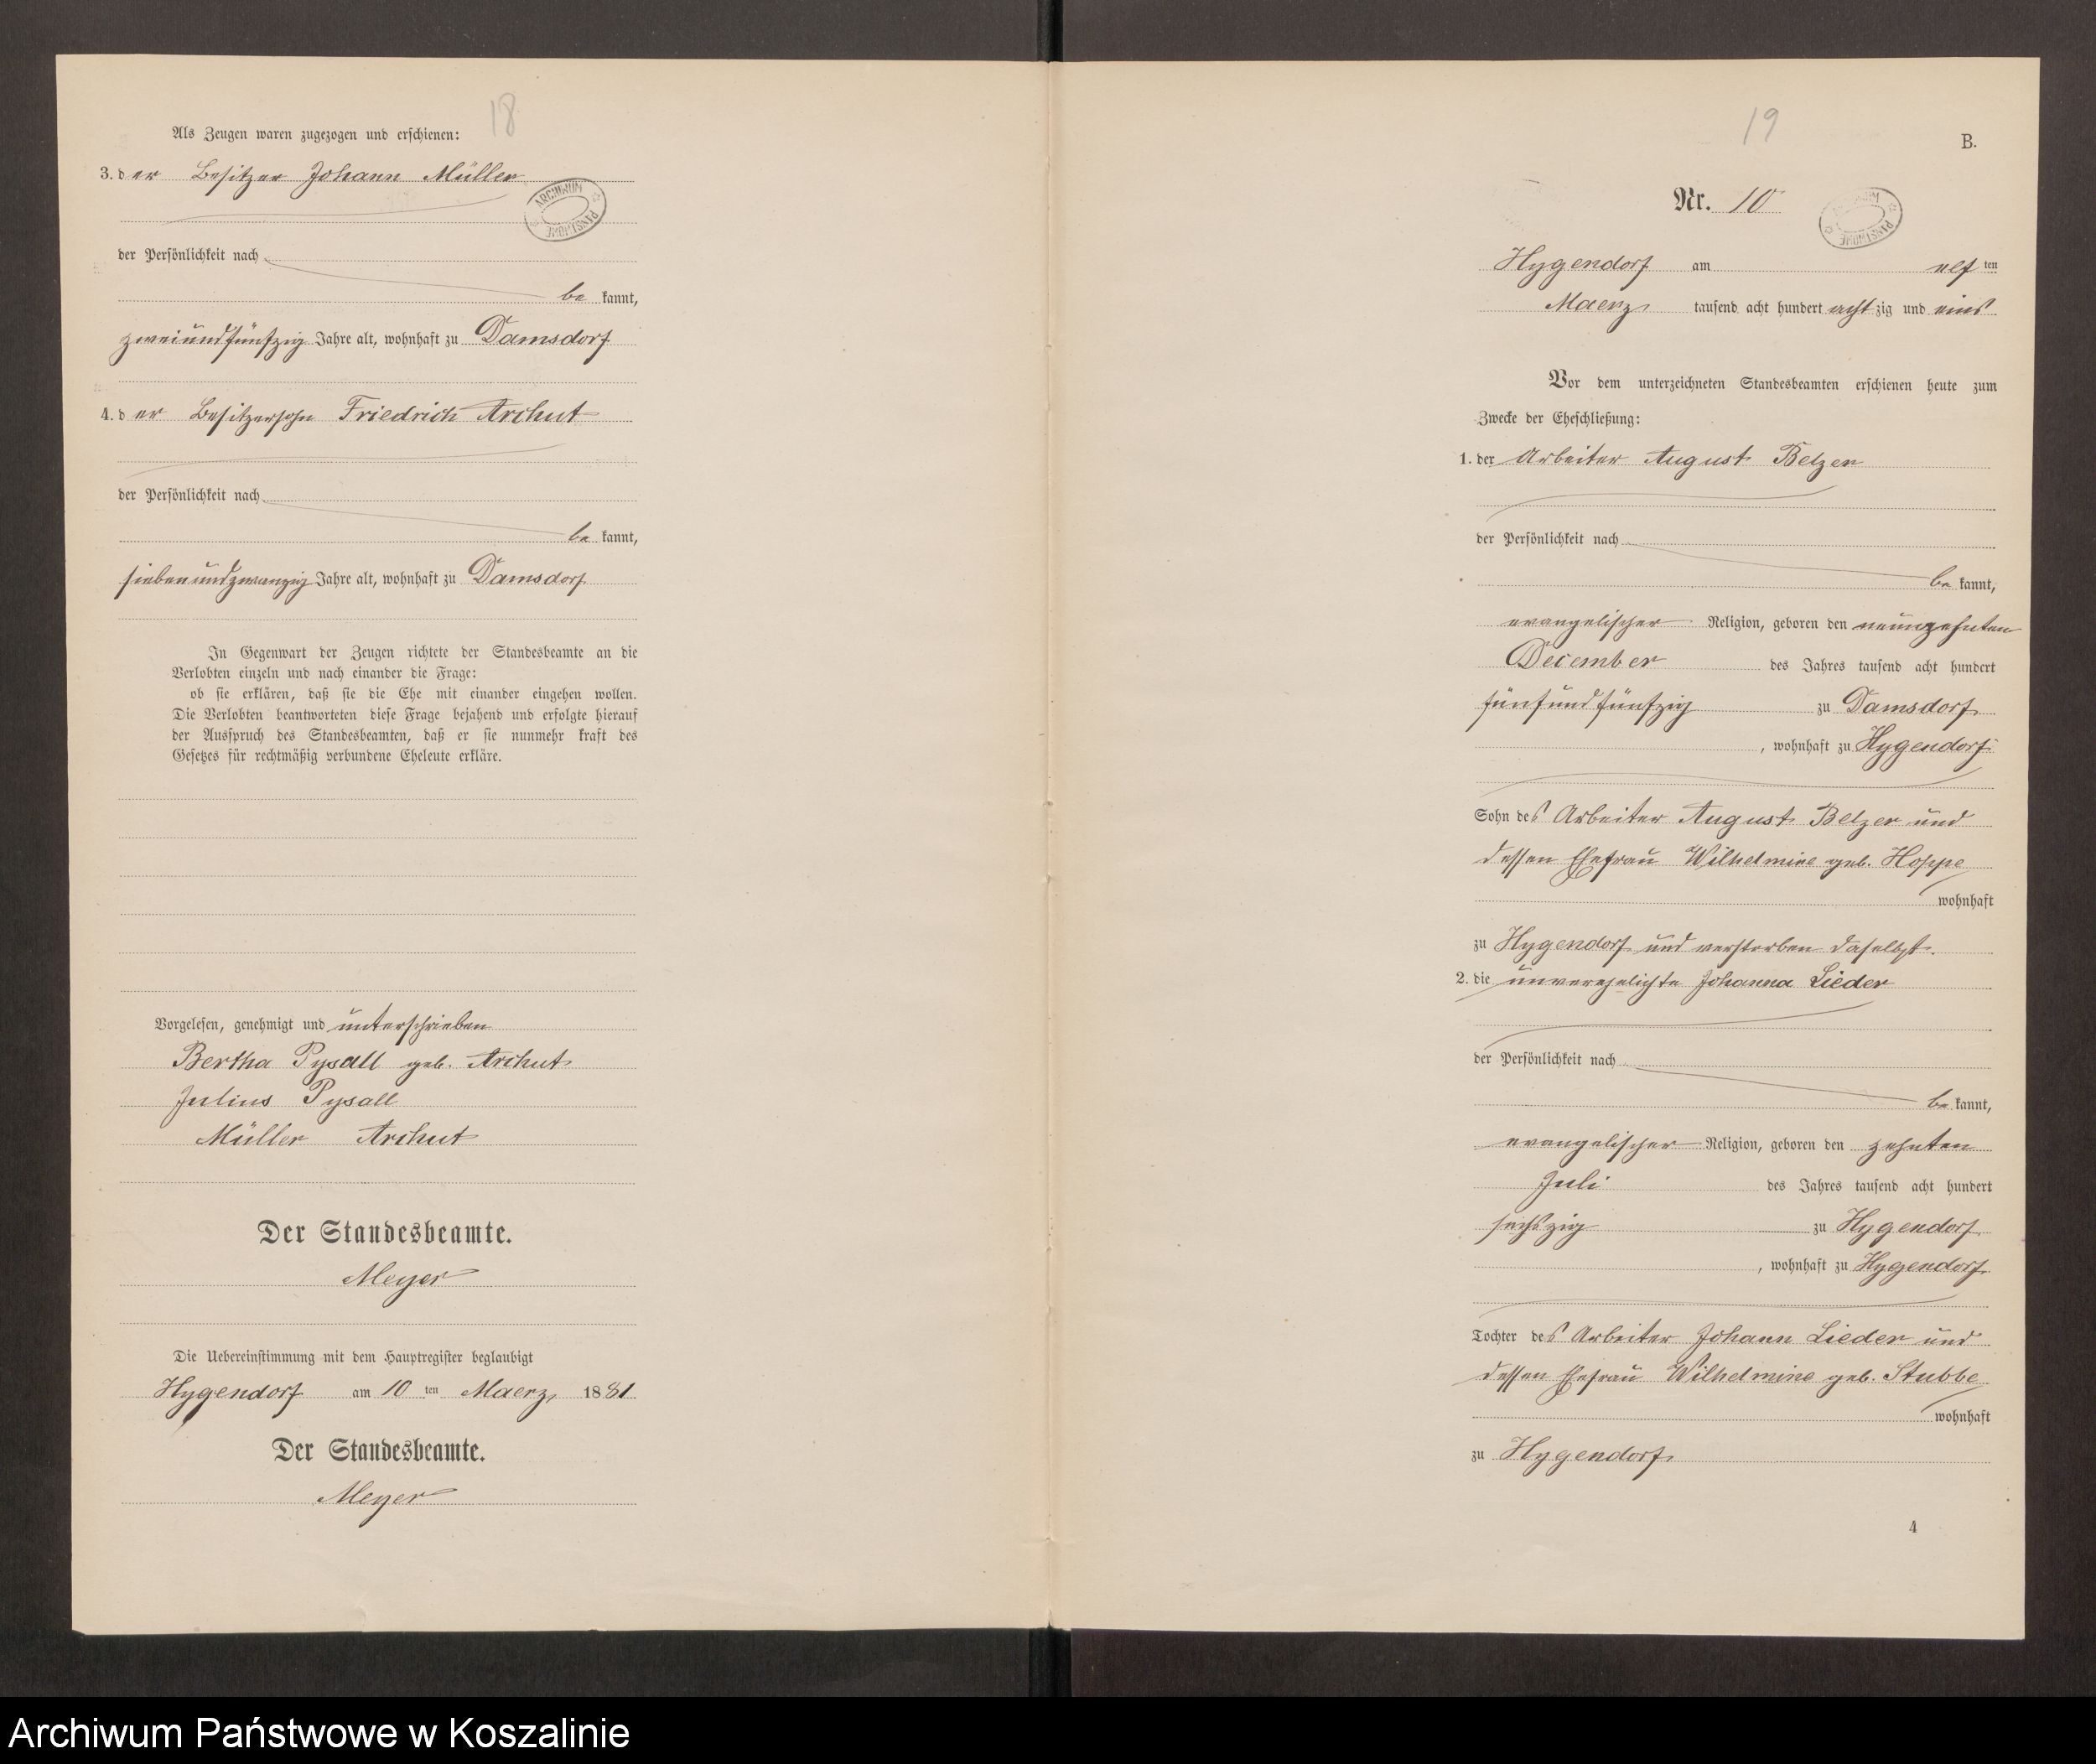 18
Als Zeugen waren zugezogen und erschienen:
3. der Besitzer Johann Müller
ARCHIWUM PAŃSTWOWE
der Persönlichkeit nach
be kannt,
zweiundfünfzig Jahre alt, wohnhaft zu Damsdorf
4. der Besitzersohn Friedrich Archut
der Persönlichkeit nach
be kannt,
siebenundzwanzig Jahre alt, wohnhaft zu Damsdorf
In Gegenwart der Zeugen richtete der Standesbeamte an die
Verlobten einzeln und nach einander die Frage:
ob sie erklären, daß sie die Ehe mit einander eingehen wollen.
Die Verlobten beantworteten diese Frage bejahend und erfolgte hierauf
der Ausspruch des Standesbeamten, daß er sie nunmehr kraft des
Gesetzes für rechtmäßig verbundene Eheleute erkläre.
Vorgelesen, genehmigt und unterschrieben
Bertha Pysall geb. Archut
Julius Pysall
Müller Archut
Der Standesbeamte.
Meyer
Die Uebereinstimmung mit dem Hauptregister beglaubigt
Hygendorf am 10 ten Maerz 1881
Der Standesbeamte.
Meyer
19
B.
Nr. 10
ARCHIWUM PAŃSTWOWE
Hygendorf am elf ten
Maerz tausend acht hundert acht zig und eins
Vor dem unterzeichneten Standesbeamten erschienen heute zum
Zwecke der Eheschließung:
1. der Arbeiter August Belzer
der Persönlichkeit nach
be kannt,
evangelischer Religion, geboren den neunzehnten
December des Jahres tausend acht hundert
fünfundfünfzig zu Damsdorf
, wohnhaft zu Hygendorf
Sohn des Arbeiter August Belzer und
dessen Ehefrau Wilhelmine geb. Hoppe
wohnhaft
zu Hygendorf und verstorben daselbst.
2. die unverehelichte Johanna Lieder
der Persönlichkeit nach
be kannt,
evangelischer Religion, geboren den zehnten
Juli des Jahres tausend acht hundert
sechszig zu Hygendorf
, wohnhaft zu Hygendorf
Tochter des Arbeiter Johann Lieder und
dessen Ehefrau Wilhelmine geb. Stubbe
wohnhaft
zu Hygendorf
4
Archiwum Państwowe w Koszalinie